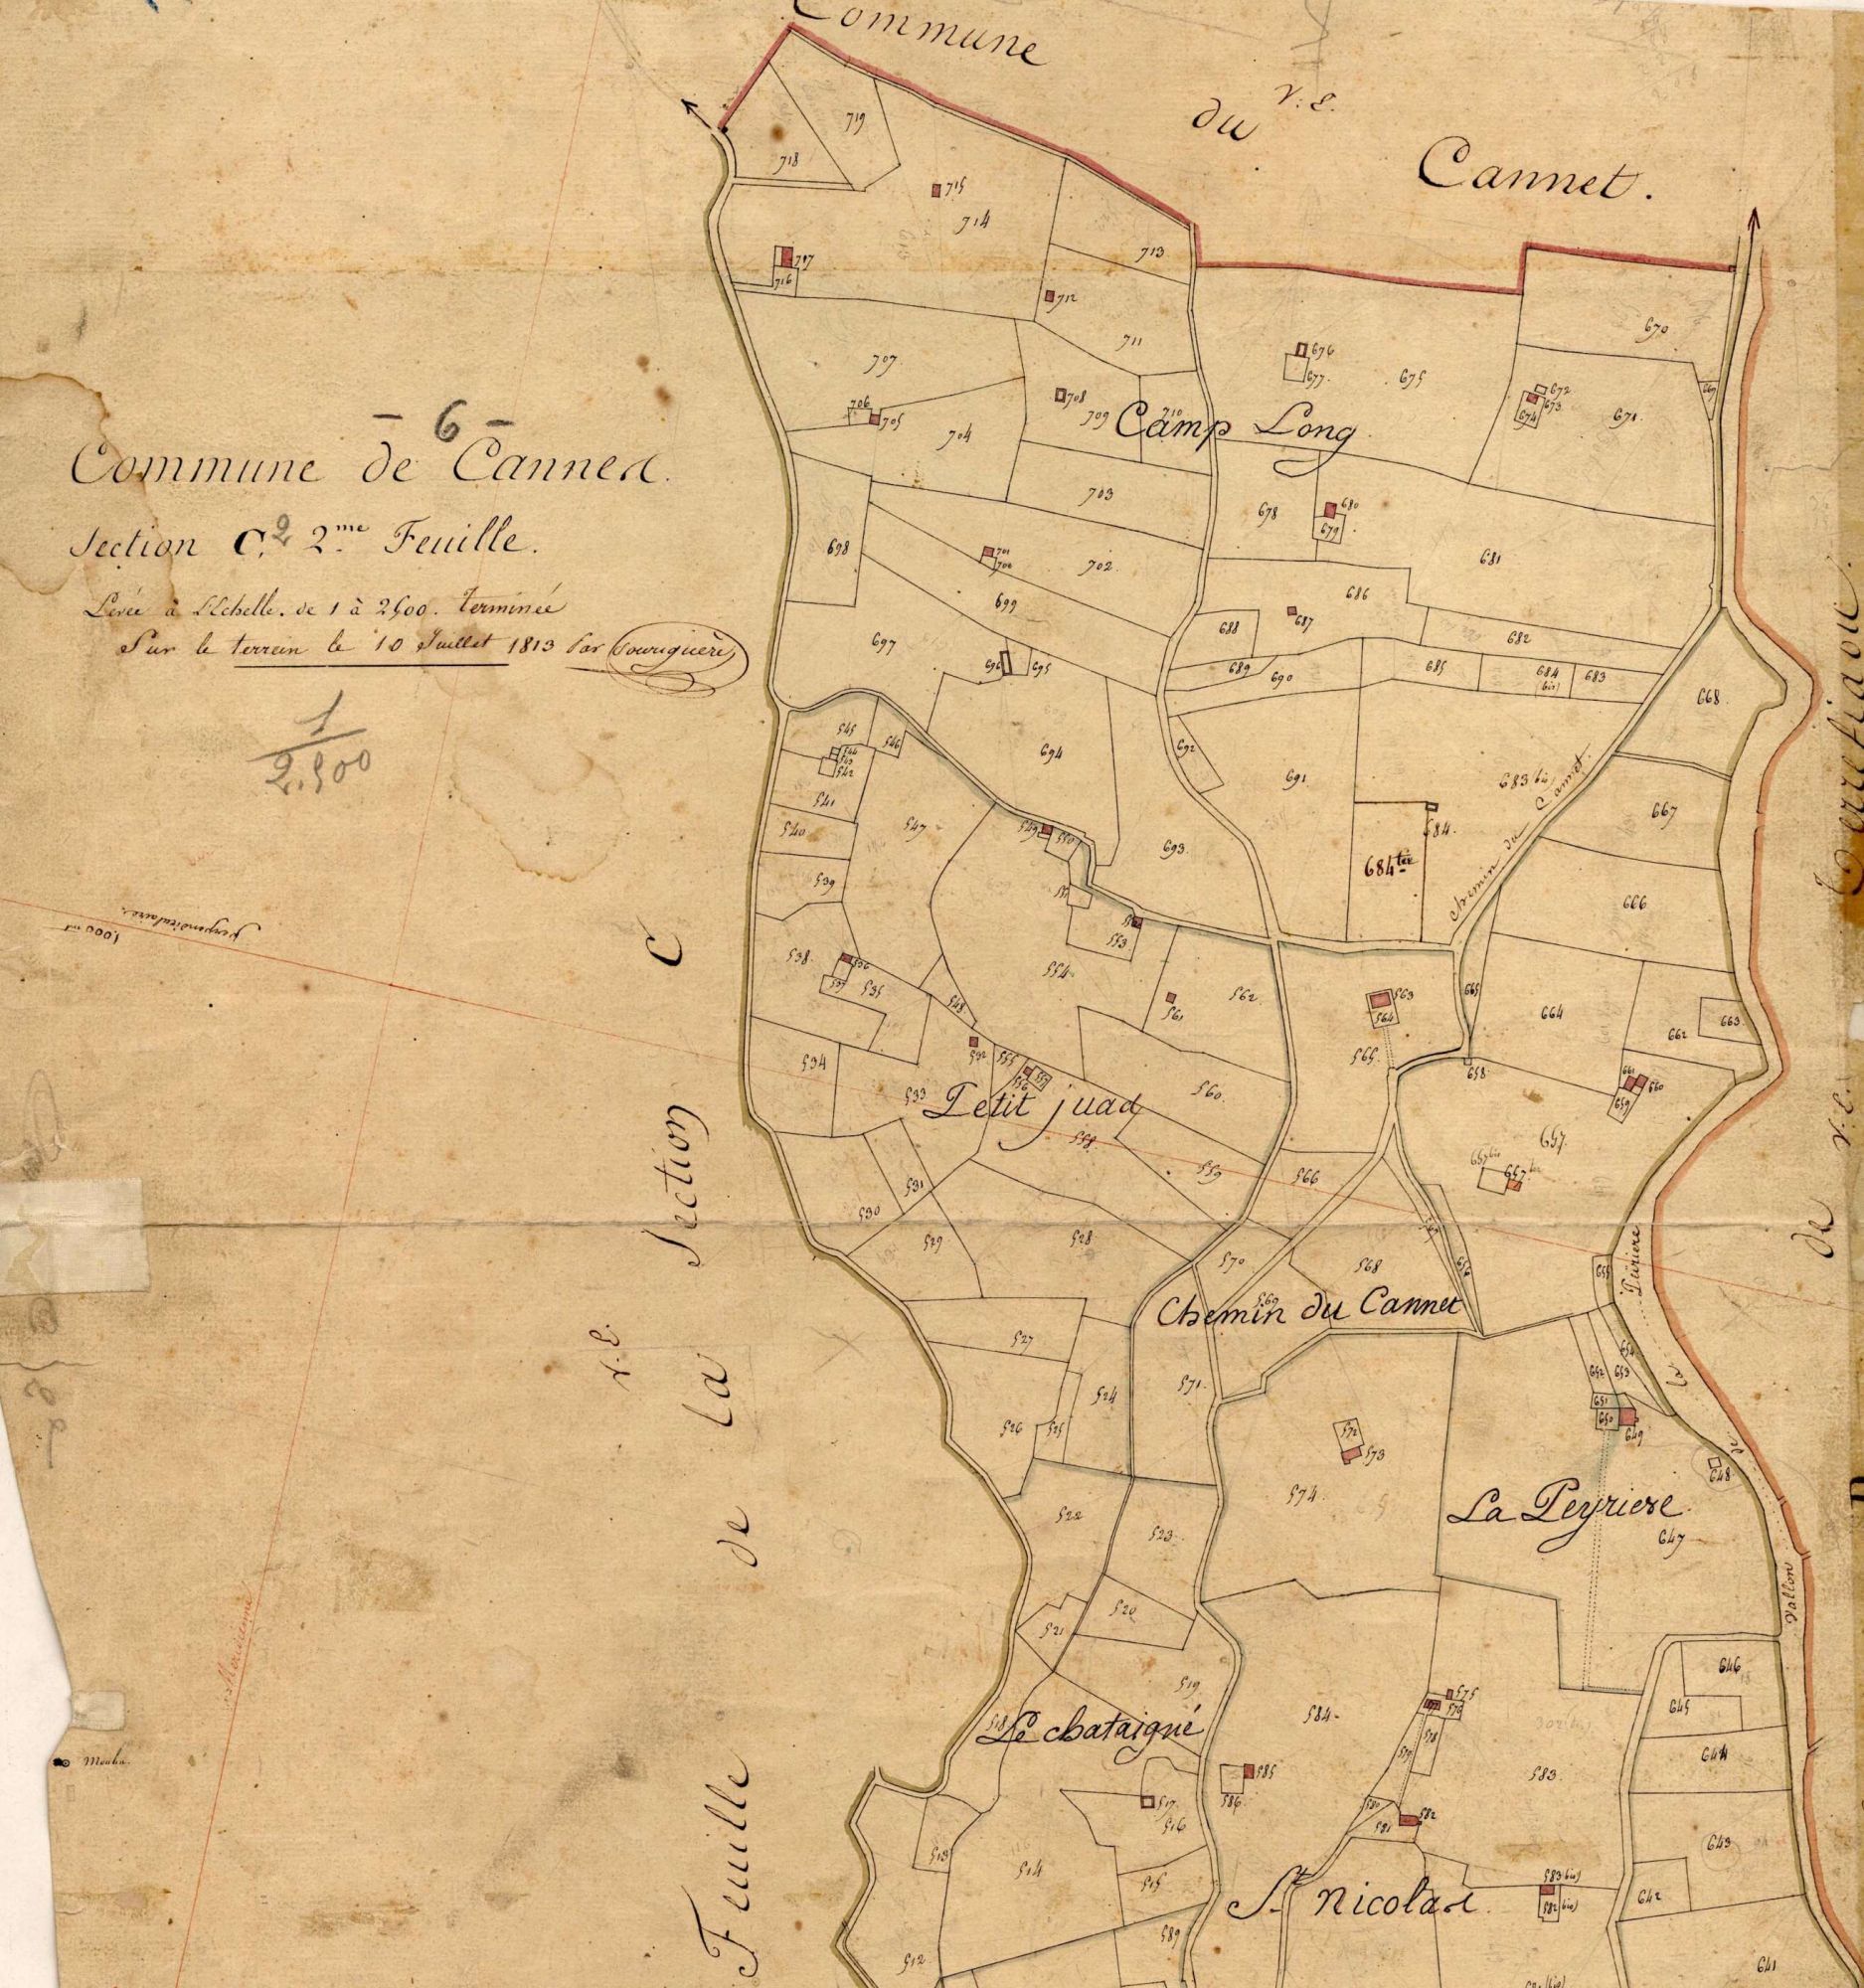 Commune
du
Cannet.
- 6 -
Commune de Cannes.
Section C. 2 2.me Feuille.
Levée à l'Echelle. de 1 à 2500. terminée
Sur le terrein le 10 Juillet 1813 Par
1
2.500
perpendiculaire
1.000 m
Méridienne
Moulin
Feuille de la Section C
Camp Long
Petit juad
Chemin du Cannet
Chemin du Cannet.
La Peyriere.
Le chataigné
St. Nicolas.
Vallon de la Puriere
718
719
715
714
717
716
713
712
711
707
706
705
704
708
709
710
703
698
701
700
702
699
697
696
695
694
693
670
669
676
677
675
672
673
674
671
678
680
679
681
686
687
688
689
690
682
685
684 (bis)
683
692
691
683 bis
684.
684 ter
668
667
666
665
664
663
662
661
660
659
658
657
657 bis
657 ter
656
655
654
653
652
651
650
649
648
647
646
645
644
643
642
641
545
546
544
543
542
541
540
547
539
538
536
537
535
534
533
532
531
530
529
528
527
526
525
524
523
522
521
520
519
518
517
516
515
514
513
512
548
549
550
551
552
553
554
555
556
557
558
559
560
561
562
563
564
565
566
568
569
570
571
572
573
574
575
576
577
578
579
580
581
582
583
583 (bis)
582 (bis)
584
585
586
589